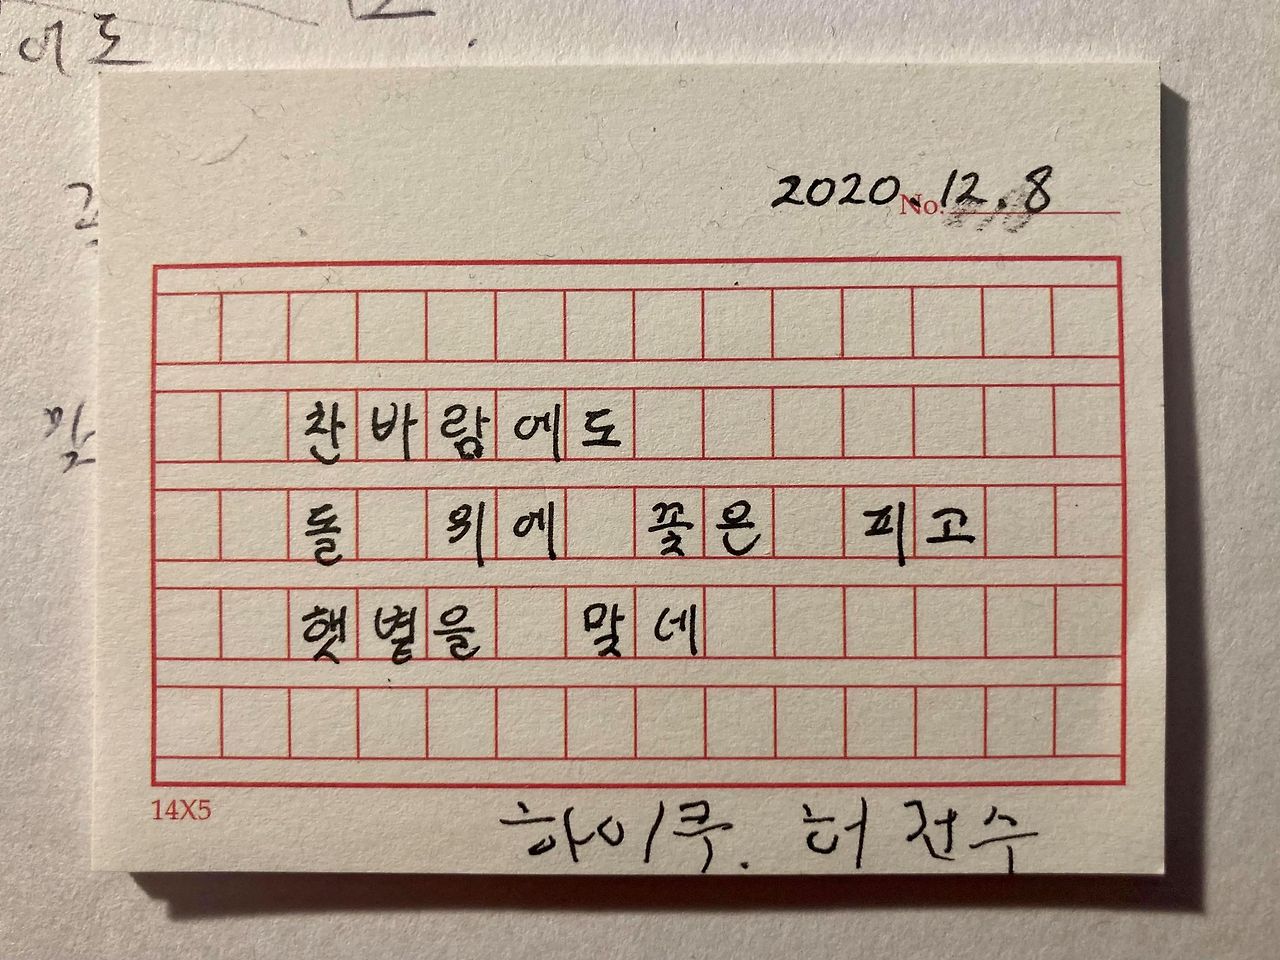 에도
2020.12.8
No.
찬바람에도
돌 위에 꽃은 피고
햇볕을 맞네
14X5
하이쿠. 허전수